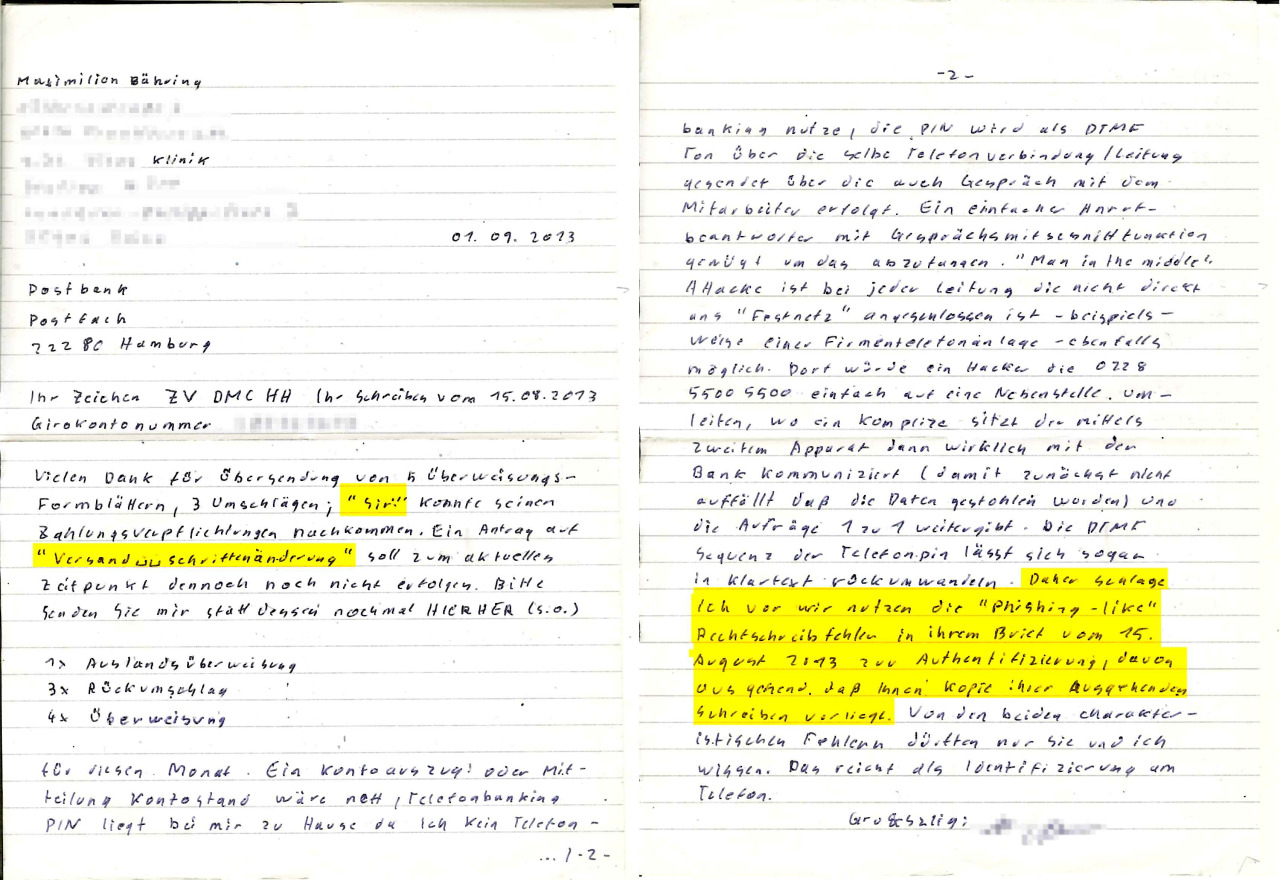 Maximilian Bähring
Klinik
01. 09. 2013
Postbank
Postfach
222 80 Hamburg
Ihr Zeichen ZV DMC HH Ihr Schreiben vom 15.08.2013
Girokontonummer
Vielen Dank für Übersendung von 5 Überweisungs-
Formblättern, 3 Umschlägen; "Sir" konnte seinen
Zahlungsverpflichtungen nachkommen. Ein Antrag auf
"Versandünschriftenänderung" soll zum aktuellen
Zeitpunkt dennoch noch nicht erfolgen. Bitte
senden Sie mir statt dessen nochmal HIERHER (s.o.)
1x Auslandsüberweisung
3x Rückumschlag
4x Überweisung
für diesen Monat. Ein Kontoauszug oder Mit-
teilung Kontostand wäre nett, Telefonbanking
PIN liegt bei mir zu Hause da ich kein Telefon-
... /-2-
-2-
banking nutze, die PIN wird als DTMF
Ton über die selbe Telefonverbindung/Leitung
gesendet über die auch Gespräch mit dem
Mitarbeiter erfolgt. Ein einfacher Anruf-
beantworter mit Gesprächsmitschnittfunktion
genügt um das abzufangen. "Man in the middle"
Attacke ist bei jeder Leitung die nicht direkt
ans "Festnetz" angeschlossen ist - beispiels-
weise einer Firmentelefonanlage - ebenfalls
möglich. Dort würde ein Hacker die 0228
5500 5500 einfach auf eine Nebenstelle um-
leiten, wo ein Komplize sitzt der mittels
zweitem Apparat dann wirklich mit der
Bank kommuniziert (damit zunächst nicht
auffällt daß die Daten gestohlen wurden) und
die Aufträge 1 zu 1 weitergibt. Die DTMF
Sequenz der Telefonpin lässt sich sogar
in Klartext rückumwandeln. Daher schlage
ich vor wir nutzen die "Phishing-like"
Rechtschreibfehler in ihrem Brief vom 15.
August 2013 zur Authentifizierung, davon
ausgehend, daß Ihnen Kopie ihrer Ausgehenden
Schreiben vorliegt. Von den beiden charakter-
istischen Fehlern dürften nur Sie und ich
wissen. Das reicht als Identifizierung am
Telefon.